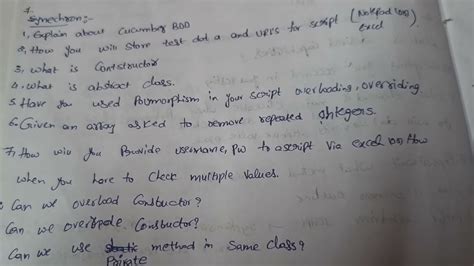 7.
Synechron:-
1, Explain about Cucumber BDD
2, How you will store test data and users for script (Notepad (or) excel
3, what is Contstructor
4. what is abstract class.
5. Have you used Polymorphism in your script overloading, overriding
6. Given an array asked to remove repeated integers.
7, How will you Provide username, pw to script via excel (or) How
when you have to check multiple values.
Can we overload Constructor?
Can we override Constructor?
Can we use method in same class?
Private